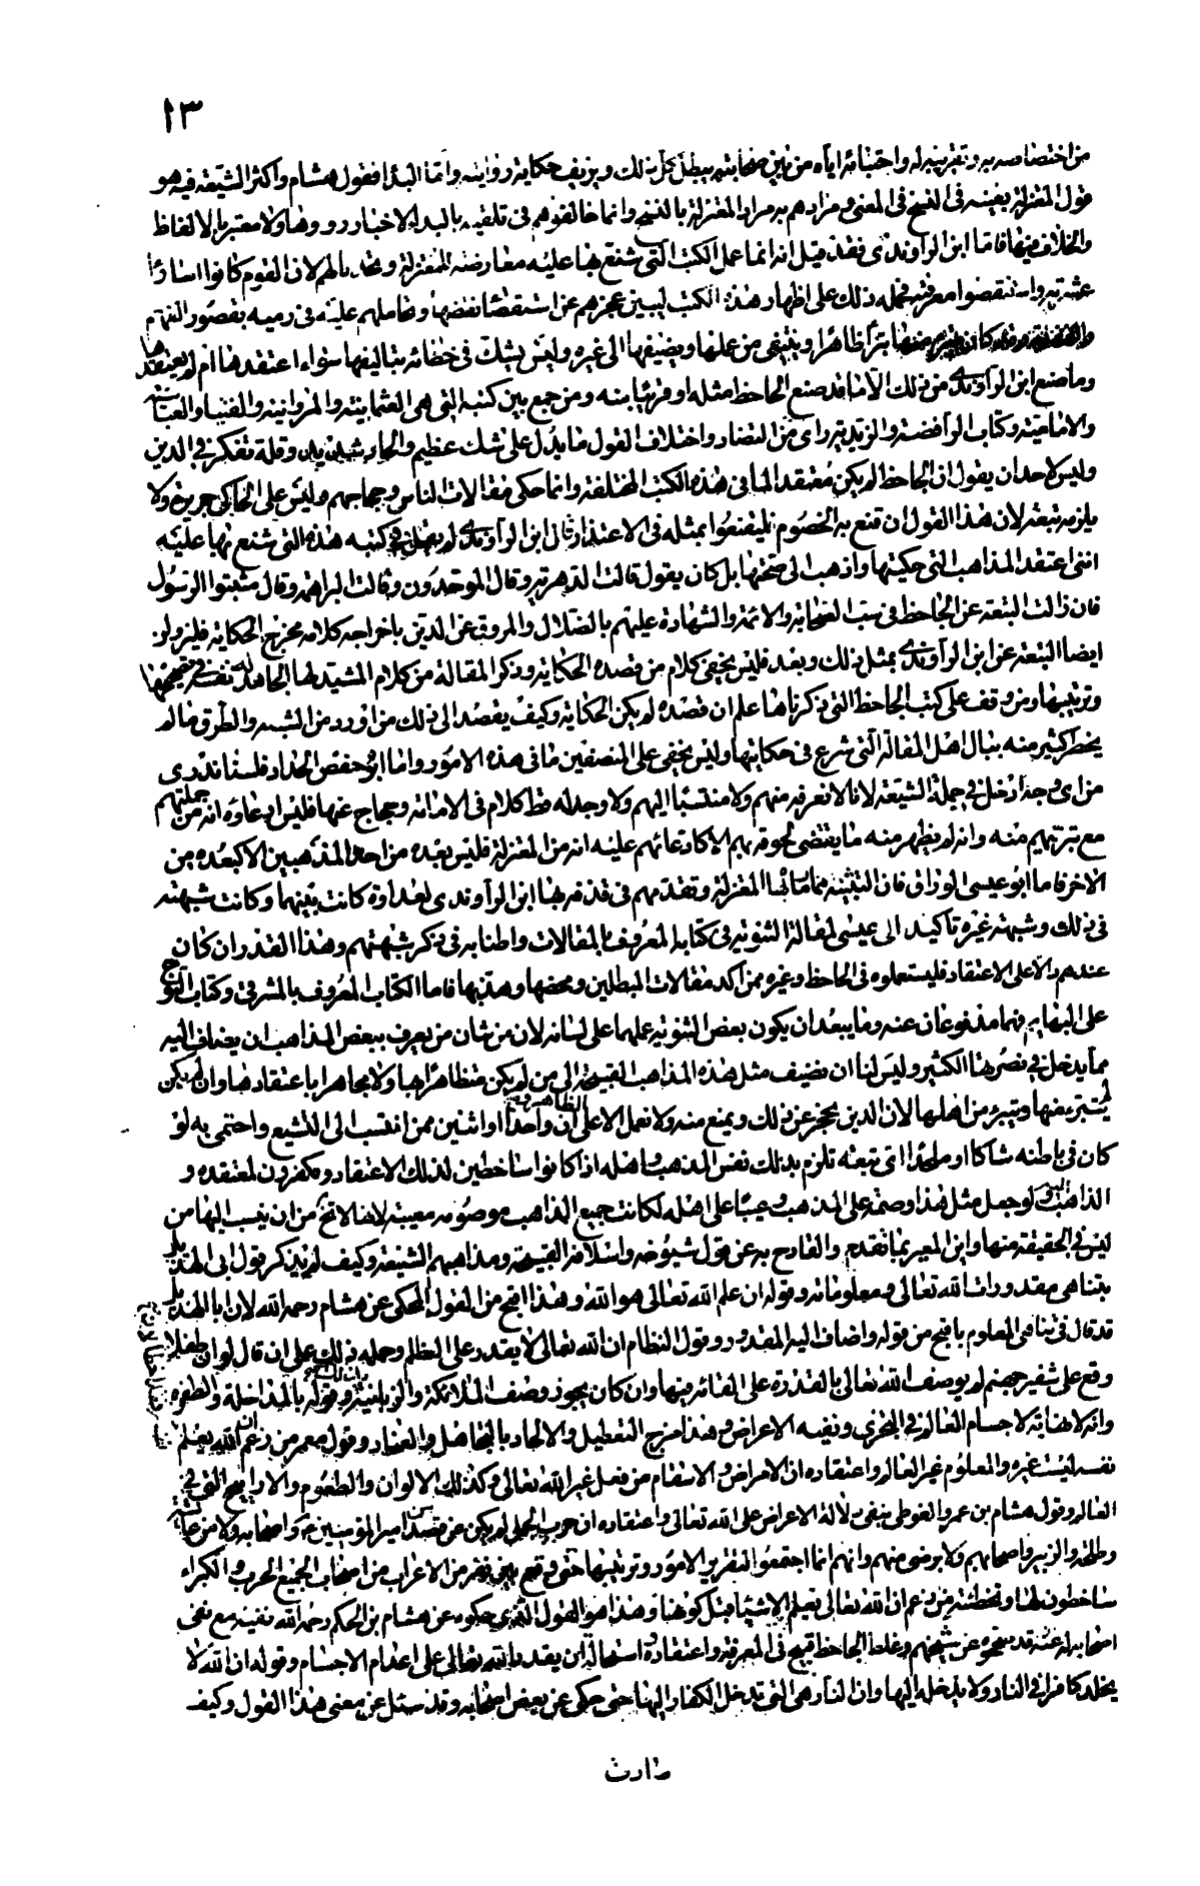 ١٣
من اختصاصه به وتقريبه له واجتبائه اياه من بين صحابته يبطل كل ذلك ويزيف حكاية روايته واما البدا فقول هشام واكثر الشيعة فيه هو
قول المعتزلة بعينه فى النسخ فى المعنى ومرادهم به مراد المعتزلة بالنسخ وانما خالفوهم فى تلقيبه بالبدا لاخبار رووها ولا معتبر بالالفاظ
والخلاف فيها فاما ابن الراوندى فقد قيل انه انما عمل الكتب التى شنع بها عليه معارضة للمعتزلة وتحديا لهم لان القوم كانوا اساؤا
عشرته واستنقصوا معرفته فحمله ذلك على اظهار هذه الكتب ليبين عجزهم عن استقصا نقضها وتحاملهم عليه فى رميه بقصور الفهم
وقد كان يتبرأ منها تبرأ ظاهرا وينتفى من عملها ويضيفها الى غيره وليس يشك فى خطائه بتاليفها سواء اعتقدها ام لم يعتقدها
وما صنع ابن الراوندى من ذلك الا ما قد صنع الجاحظ مثله او قريبا منه ومن جمع بين كتبه التى هى العثمانية والمروانية والفتيا والعباسية
والامامية وكتاب الرافضة والزيدية راى من التضاد واختلاف القول ما يدل على شك عظيم والحاد شديد وقلة تفكر فى الدين
وليس لاحد ان يقول ان الجاحظ لم يكن معتقدا لما فى هذه الكتب المختلفة وانما حكى مقالات الناس وحجاجهم وليس على الحاكى جريرة ولا
يلزمه تبعة لان هذا القول ان قنع به الخصوم فليقنعوا بمثله فى الاعتذار فان ابن الراوندى لم يقل فى كتبه هذه التى شنع بها عليه
اننى اعتقد المذاهب التى حكيتها واذهب الى صحتها بل كان يقول قالت الدهرية وقال الموحدون وقالت البراهمة وقال مثبتوا الرسول
فان زالت التبعة عن الجاحظ فى سب الصحابة والائمة والشهادة عليهم بالضلال والمروق عن الدين باخراجه كلامه مخرج الحكاية فليزولن
ايضا التبعة عن ابن الراوندى بمثل ذلك وبعد فليس يخفى كلام من قصده الحكاية وذكر المقالة من كلام المشيد لها الجاهد له نفسه فى تصحيحها
وترتيبها ومن وقف على كتب الجاحظ التى ذكرناها علم ان قصده لم يكن الحكاية وكيف يقصد الى ذلك من اورد من الشبه والطرق ما لم
يخطر كثير منه ببال اهل المقالة التى شرع فى حكايتها وليس يخفى على المنصفين ما فى هذه الامور واما ابو حفص الحداد فلسنا ندرى
من اى وجه ادخل فى جملة الشيعة لانا لا نعرفه منهم ولا منتسبا اليهم ولا وجد له قط كلام فى الامامة وحجاج عنها فليس ادعاؤه انه من جملتهم
مع تبريهم منه وانه لم يظهر منه ما يقتضى لحوقه بهم الا كادعائهم عليه انه من المعتزلة فليس بعده من احد المذهبين الا كبعده من
الاخر فاما ابو عيسى الوراق فان التثنية مما رماه بها المعتزلة وتقدمهم فى قذفه بها ابن الراوندى لعداوة كانت بينهما وكانت شبهته
فى ذلك وشبهة غيره تاكيد ابى عيسى لمقالة الثنوية فى كتابه المعروف بالمقالات واطنابه فى ذكر شبهتهم وهذا القدر ان كان
عندهم دالا على الاعتقاد فليستعملوه فى الجاحظ وغيره ممن اكد مقالات المبطلين ومحضها وهذبها فاما الكتاب المعروف بالمشرقى وكتاب النوح
على البهايم فهما مدفوعان عنه وما يبعد ان يكون بعض الثنوية عملهما على لسانه لان من شان من يعرف ببعض المذاهب ان يضاف اليه
مما يدخل فى نصرها الكثير وليس لنا ان نضيف مثل هذه المذاهب القبيحة الى من لم يكن متظاهرا بها ولا مجاهرا باعتقادها وان لم يكن
يتبرء منها ويتبرء من اهلها لان الدين يحجز عن ذلك ويمنع منه ولا نعمل الا على الظاهر وبعد فان واحدا او اثنين ممن انتسب الى التشيع واحتمى به لو
كان فى باطنه شاكا او ملحدا اى تبعة تلزم بذلك نفس المذهب واهله اذا كانوا ساخطين لذلك الاعتقاد ومكفرون لمعتقده و
الذاهب اليه ولو جعل مثل هذا وصمة على المذهب وعيبا على اهله لكانت جميع المذاهب موصومة معيبة لانها لا تخ من ان ينسب اليها من
ليس فى الحقيقة منها واين المعير بما تقدم والقادح به عن قول شيوخه واسلافه القبيحة ومذاهبهم الشنيعة وكيف لم يذكر قول ابى الهذيل
بتناهى مقدورات الله تعالى ومعلوماته وقوله ان علم الله تعالى هو الله وهذا اقبح من القول المحكى عن هشام رحمه الله لان ابا الهذيل
قد قال فى تناهى المعلوم باقبح من قوله واضاف اليه المقدور وقول النظام ان الله تعالى لا يقدر على الظلم وحمله ذلك على ان قال لو ان طفلا
وقع على شفير جهنم لم يوصف الله تعالى بالقدرة على القائه فيها وان كان يجوز وصف الملائكة والزبانية بذلك وقوله بالمداخلة والطفرة
وانه لا نهاية لاجسام العالم فى التجزى ونفيه الاعراض وهذا مزج التعطيل والالحاد بالتجاهل والعناد وقول معمر من زعم ان الله يعلم
نفسه ليست غيره والمعلوم غير العالم واعتقاده ان الامراض والاسقام من فعل غير الله تعالى وكذلك الالوان والطعوم والاراييح التى فى
العالم وقول هشام بن عمرو الفوطى بنفى دلالة الاعراض على الله تعالى واعتقاده ان حرب الجمل لم يكن عن قصد من امير المؤمنين ع واصحابه ولا من عايشة
وطلحة والزبير واصحابهم ولا برضى منهم وانهم انما اجتمعوا لتقرير الامور وترتيبها حتى وقع بين نفر من الاعراب من اصحاب الجميع الحرب والكبراء
ساخطون لها وتخطئته من زعم ان الله تعالى يعلم الاشيا قبل كونها وهذا هو القول الذى حكوه عن هشام بن الحكم رحمه الله نفسه مع نفى
اصحابه له عنه قد صححوه عن شيخهم وغلط الجاحظ قبيح فى المعرفة واعتقاده استحالة ان يقدر الله تعالى على اعدام الاجسام وقوله ان الله لا
يخلد كافرا فى النار ولا يدخله اليها وان النار هى التى تدخل الكفار اليها حتى حكى عن بعض اصحابه وقد سئل عن معنى هذا القول وكيف
صارت